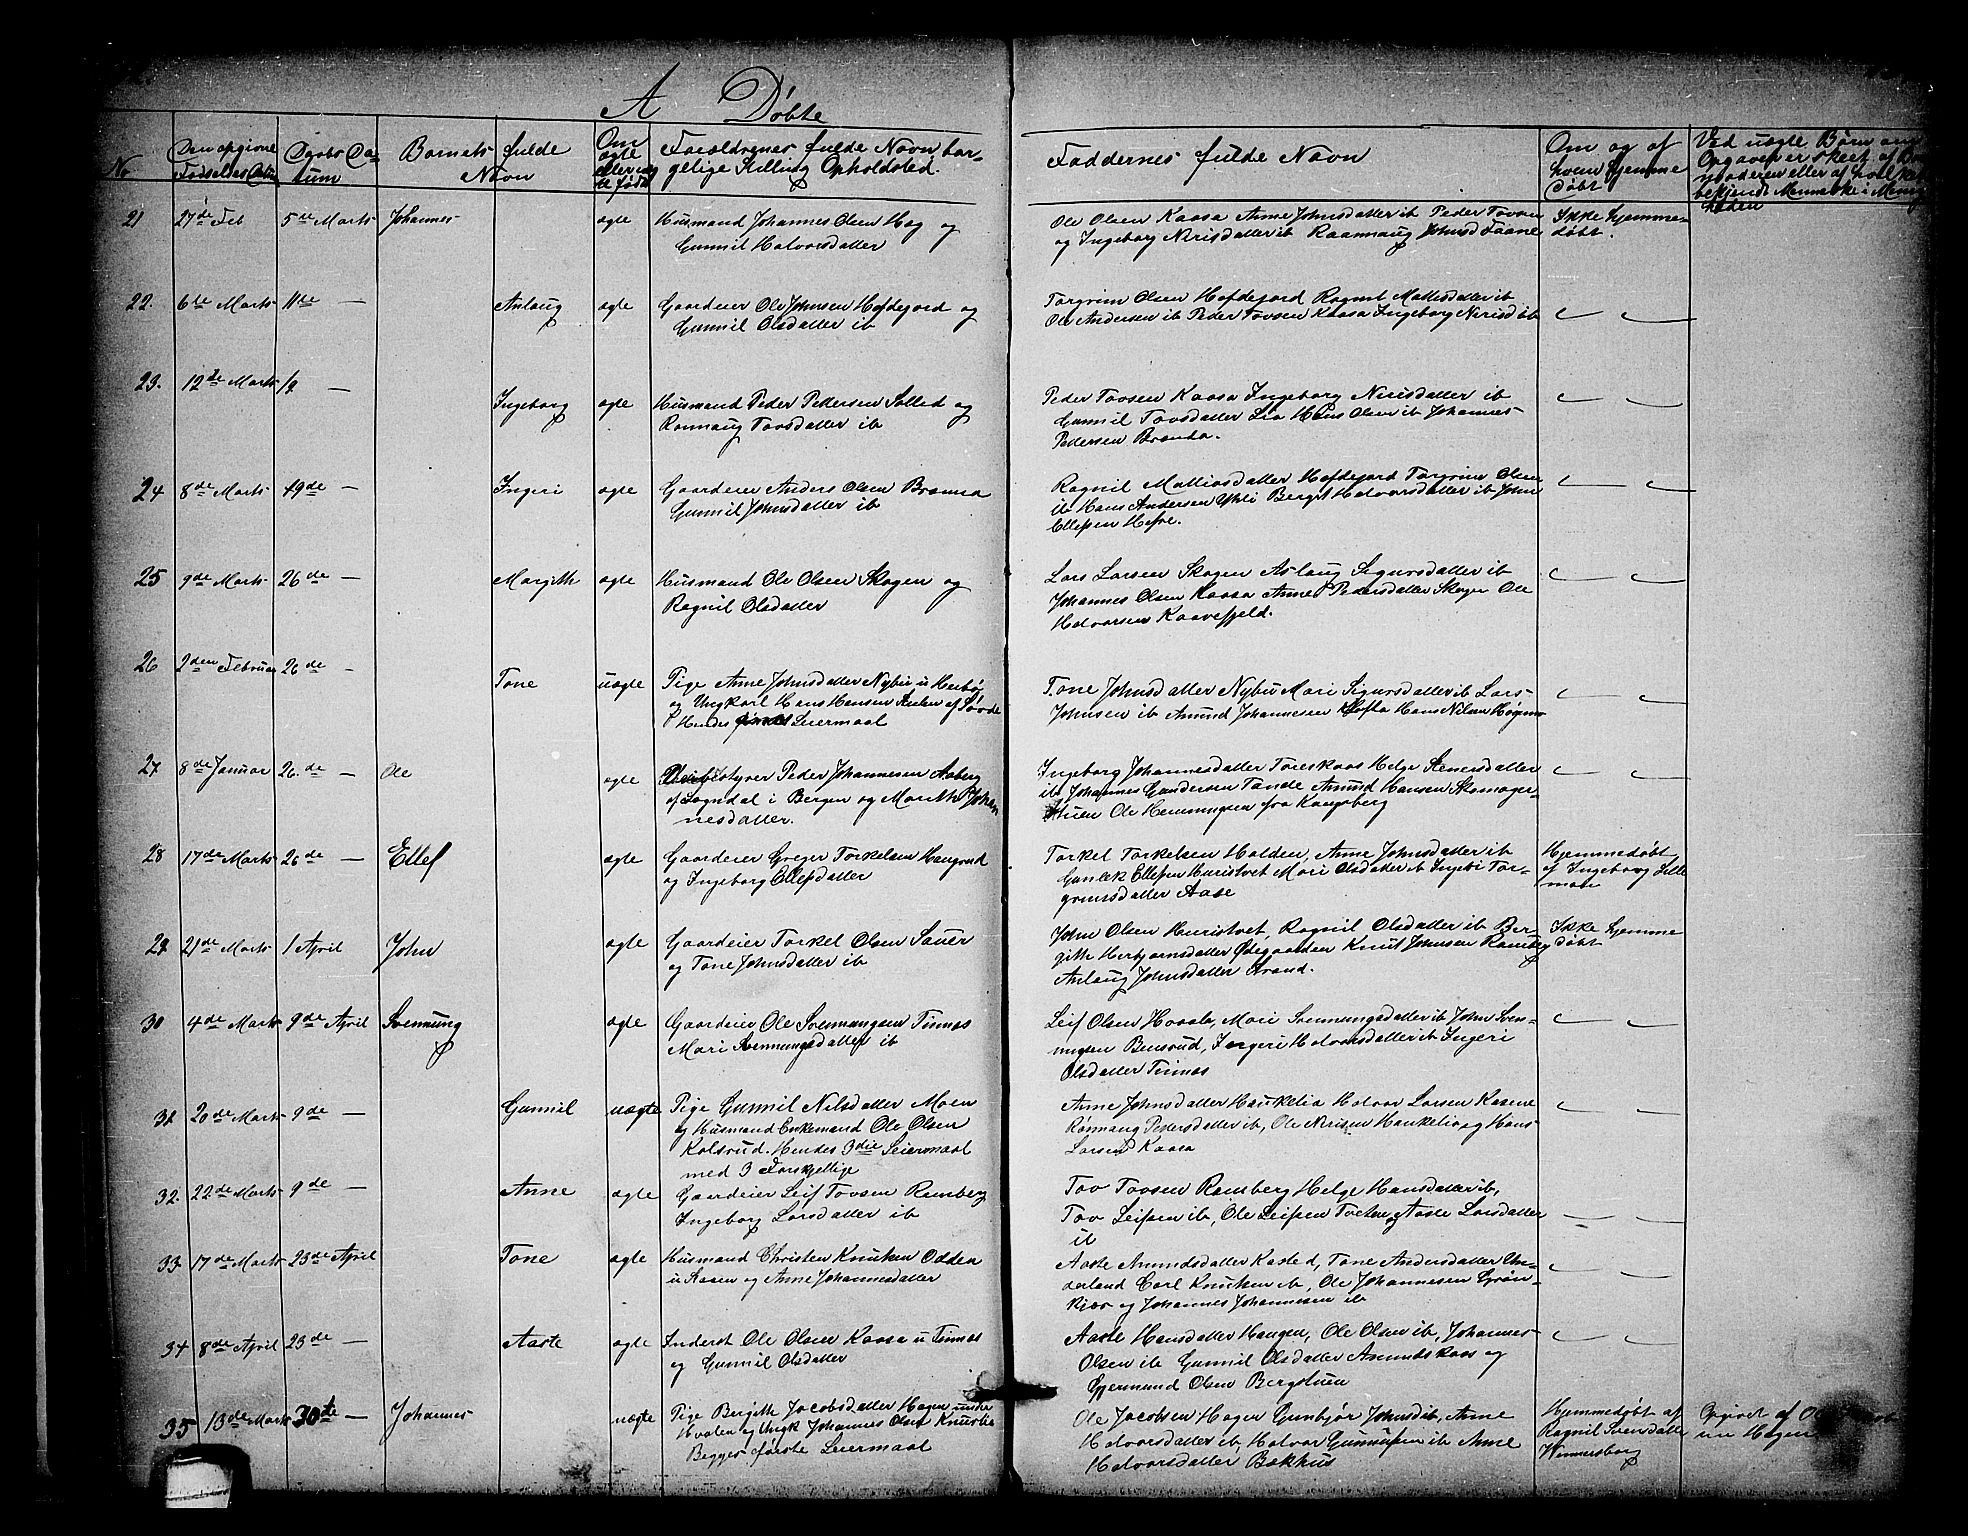 A Døbte
No
Den opgivne
Fødselses Datum
Daabs Da-
tum
Barnets fulde
Navn
Om
ægte
eller uæg
te født
Forældrenes fulde Navn bor-
gelige Stilling Opholdsted.
Faddernes fulde Navn
Om og af
hvem hjemme
Døbt
Ved uægte Børn om
Opgaven er skeet af
Moderen eller af
bekjendt Menneske i Menig
heden
21 27de Feb 5de Marts Johannes ægte Husmand Johannes Olsen Hag og
Gunnil Halvorsdatter
Ole Olsen Kaasa Anne Johnsdatter ib Peder Tovsen
og Ingeborg Nirisdatter ib Raannaug Johnsd Faane
Ikke hjemme-
døbt.
22. 6te Marts 11te — Aslaug ægte Gaardeier Ole Johnsen Hofdejord og
Gunnil Olsdatter ib
Torgrim Olsen Hofdejord Ragnil Mattisdatter ib
Ole Andersen ib Peder Tovsen Kaasa Ingeborg Nirisd ib
23. 12te Marts 12 — Ingeborg ægte Husmand Peder Pedersen Solled og
Rannaug Tovsdatter ib
Peder Tovsen Kaasa Ingeborg Nirisdatter ib
Gunnil Tovsdatter Lia Hans Olsen ib Johannes
Pedersen
24 8de Marts 19de — Ingeri ægte Gaardeier Anders Olsen
Gunnil Johnsdatter ib
Ragnil Mattiasdatter Hofdejord Torgrim Olsen
ib Hans Andersen Bergit Halvorsdatter ib John
Ellefsen
25 9de Marts 26de — Margith ægte Husmand Ole Olsen Skogen og
Ragnil Olsdatter
Lars Larsen Skogen Aslaug Sigursdatter ib
Johannes Olsen Kaasa Anne Pedersdatter Skogen Ole
Halvorsen Kaavefjeld.
26 2den Februar 26de — Tone uægte Pige Anne Johnsdatter Nybu u
og Ungkarl Hans Hansen af
Hendes Leiermaal
Tone Johnsdatter Nybu Mari Sigursdatter ib Lars
Johnsen ib Amund Johannesen Hans Nilsen
27 8de Januar 26.de — Ole ægte Peder Johannesen Aaberg
af Sogndal i Bergen og Marith Johan
nesdatter.
Ingeborg Johannesdatter Helge Stenersdatter
ib Johannes Gundersen Tande Amund Hansen Skomager-
stuen Ole Hemmingsen fra Kongsberg
28 17de Marts 26de — Ellef ægte Gaardeier Greger Torkelsen Haugrud
og Ingeborg Ellefsdatter
Torkel Torkelsen Holden, Anne Johnsdatter ib
Gunlek Ellefsen Mari Olsdatter ib Ingebi Tor-
grimsdatter Aase
Hjemmedøbt
af Ingeborg
29. 21de Marts 1 April John ægte Gaardeier Torkel Olsen Sauer
og Tone Johnsdatter ib
John Olsen Huristvet, Ragnil Olsdatter ib Ber-
gith Herbjornsdatter Ødegaarden Knut Johnsen Ramberg
Aslaug Johnsdatter Strand.
Ikke hjemme
døbt
30 4de Marts 9de April Svennung ægte Gaardeier Ole Svennungsen Tinnes
Mari Svennungsdatter ib
Leif Olsen Mari Svennungsdatter ib John Sven-
nungsen Ingeri Halvorsdatter ib Ingeri
Olsdatter Tinnes
31 20de Marts 9de — Gunnil uægte Pige Gunnil Nilsdatter Moen
og Husmand Enkemand Ole Olsen
Kolsrud. Hendes 3die Leiermaal
med 3 Forskjellige
Anne Johnsdatter Haukelia Halvor Larsen Kasene
Rønnaug Pedersdatter ib, Ole Nirisen Haukelia og Hans
Larsen Kaasa
32. 22de Marts 9de — Anne ægte Gaardeier Leif Tovsen Ramberg
Ingeborg Larsdatter ib
Tov Tovsen Ramberg Helge Hansdatter ib,
Tov Leifsen ib, Ole Leifsen og Aaste Larsdatter
ib
33. 17de Marts 23de April Tone ægte Husmand Christen Knutsen Odden
u Kasen og Anne Johannesdatter
Aaste Amundsdatter Kasted, Tone Andersdatter Un-
derland Carl Knutsen ib, Ole Johannesen Grøn-
kjær og Johannes Johannesen ib
34 8de April 23de — Aaste ægte Inderst Ole Olsen Kaasa u Tinnes
og Gunnil Olsdatter
Aaste Hansdatter Haugen, Ole Olsen ib, Johannes
Olsen ib Gunnil Olsdatter Amundskaas og
Gjermund Olsen Bergstuen
35 13de Marts 30te — Johannes uægte Pige Bergith Jacobsdatter Hagen under
Hvalen og Ungk Johannes Olsen
Begges første Leiermaal
Ole Jacobsen Hagen Gunbjør Johnsd ib, Anne
Halvorsdatter ib, Halvor Gunnufsen ib Anne
Halvorsdatter Bakhus
Hjemmedøbt af
Ragnil Svensdatter
Wennersborg
Opgivet af Ole
Hagen